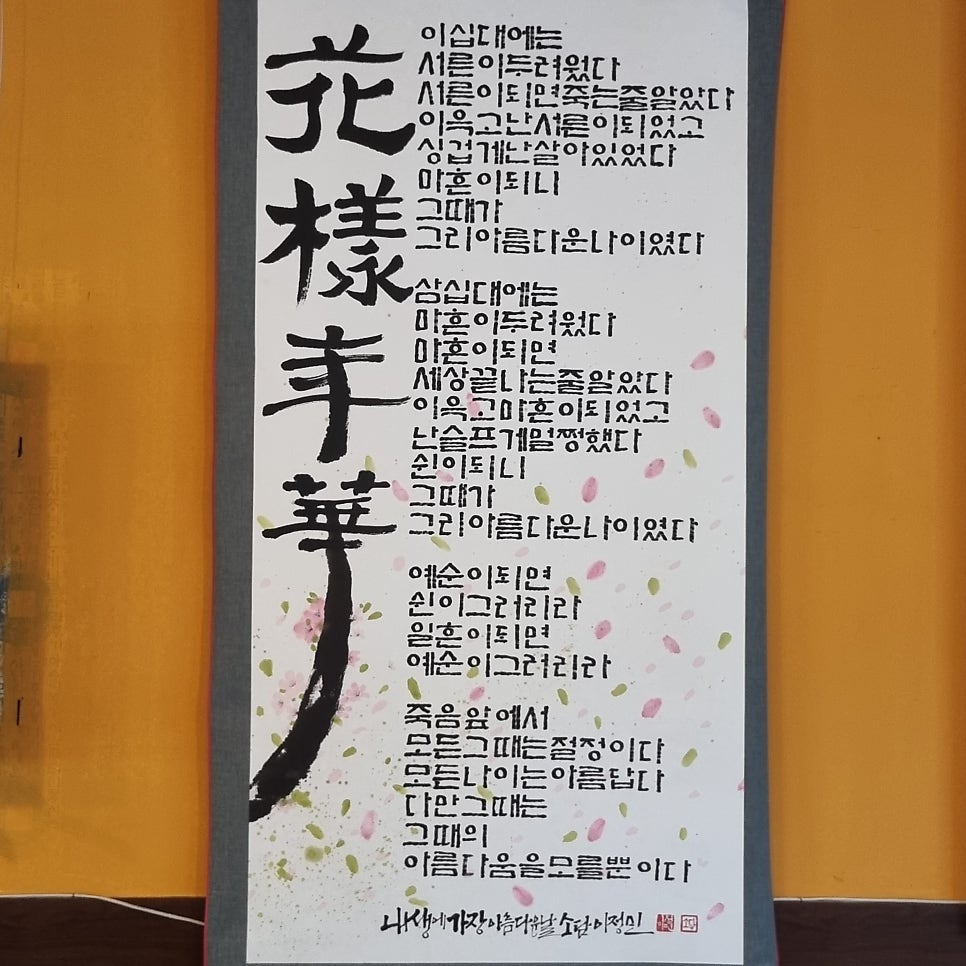 花樣年華
이십대에는
서른이두려웠다
서른이되면죽는줄알았다
이윽고난서른이되었고
싱겁게난살아있었다
마흔이되니
그때가
그리아름다운나이였다
삼십대에는
마흔이두려웠다
마흔이되면
세상끝나는줄알았다
이윽고마흔이되었고
난슬프게멀쩡했다
쉰이되니
그때가
그리아름다운나이였다
예순이되면
쉰이그러리라
일흔이되면
예순이그러리라
죽음앞에서
모든그때는절정이다
모든나이는아름답다
다만그때는
그때의
아름다움을모를뿐이다
내생에가장아름다운날 소담 이정민